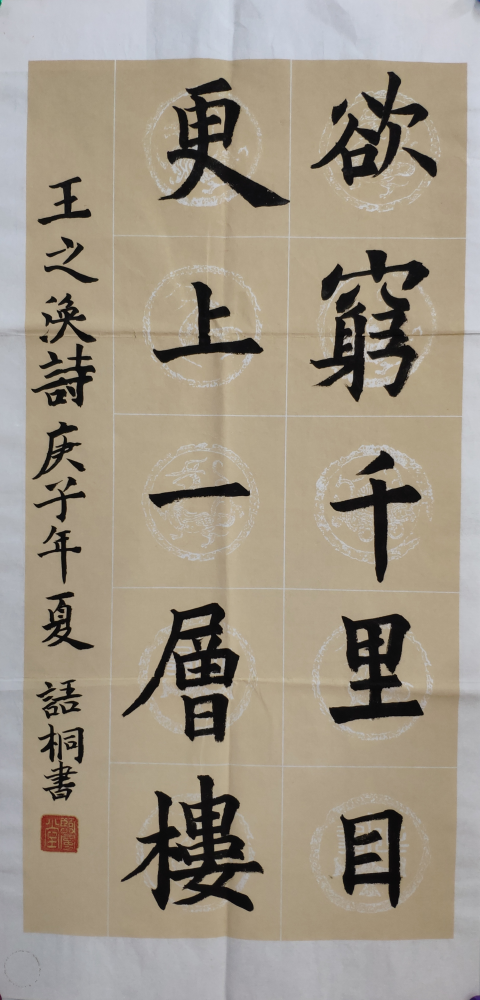 欲窮千里目
更上一層樓
王之渙詩庚子年夏 語桐書